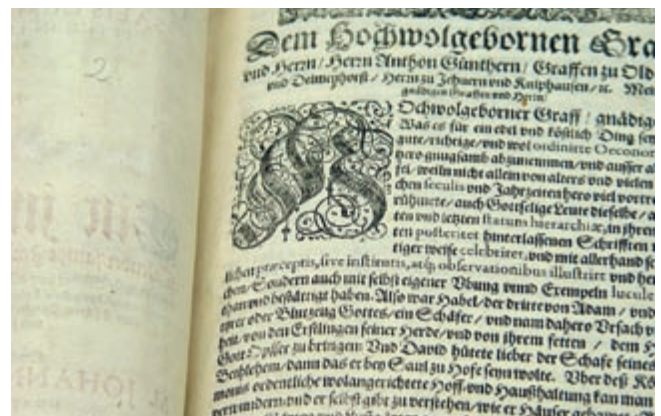 2
Dem Hochwolgebornen Gra
vnd Herrn / Herrn Anthon Günthern / Graffen zu Old
vnd Delmenhorst / Herrn zu Jehuern vnd Kniphausen / ꝛc. Mei
gnädigen Graffen vnd Herrn
Ochwolgeborner Graff / gnädige
Was es für ein edel vnd köstlich Ding sey
gute / richtige / vnd wol ordinirte Oeconom
hero gnugsamb abzunemmen / vnd ausser al
fel / weiln nicht allein von alters vnd vielen
chen seculis vnd Jahrzeiten hero viel vortre
rühmete / auch Gottselige Leute dieselbe / a
ten vnd letzten statum hierarchiæ, in ihren
ten posteritet hinterlassenen Schrifften
tiger weise celebriret, vnd mit allerhand
lichen præceptis, sive institutis, atq; observationibus illustrirt vnd
chen / Sondern auch mit selbst eigener Vbung vnnd Exempeln lucule
than vnd bestättigt haben. Also war Habel / der dritte von Adam / vnd
tyrer oder Blutzeug Gottes / ein Schäfer / vnd nam dahero Vrsach v
hen / von den Erstlingen seiner Herde / vnd von ihrem fetten / dem H
Gott Opffer zu bringen: Vnd David hütete lieber der Schafe seines
Bethlehem / dann das er bey Saul zu Hofe seyn wolte. Vber deß Kö
monis ordentliche wolangerichtete Hoff- vnd Haußhaltung kan man
vern mindern / vnd er selbst gibt zu verstehen / wie er Häuser gebawet
JOHANN